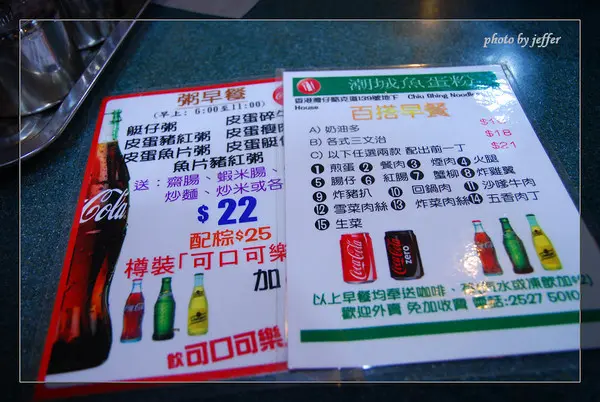 photo by jeffer
粥早餐
(早上: 6:00至11:00)
艇仔粥 皮蛋
皮蛋豬紅粥 皮蛋瘦
皮蛋魚片粥 皮蛋艇
魚片豬紅粥
送：齋腸、蝦米腸、
炒麵、炒米或各
$22
配粽$25
樽裝「可口可樂
加
飲可口可樂
Coca-Cola
潮城魚蛋粉
Chiu Shing Noodle
House
百搭早餐
A) 奶油多
B) 各式三文治 $18
C) 以下任選兩款 配出前一丁 $21
①煎蛋 ②餐肉 ③煙肉 ④火腿
⑤腸仔 ⑥紅腸 ⑦蟹柳 ⑧炸雞翼
⑨炸豬扒 ⑩回鍋肉 ⑪沙嗲牛肉
⑫雪菜肉絲 ⑬炸菜肉絲 ⑭五香肉丁
⑮生菜
Coca-Cola
Coca-Cola zero
以上早餐均奉送咖啡、
或凍飲加
歡迎外賣 免加收費 電話:2527 5010